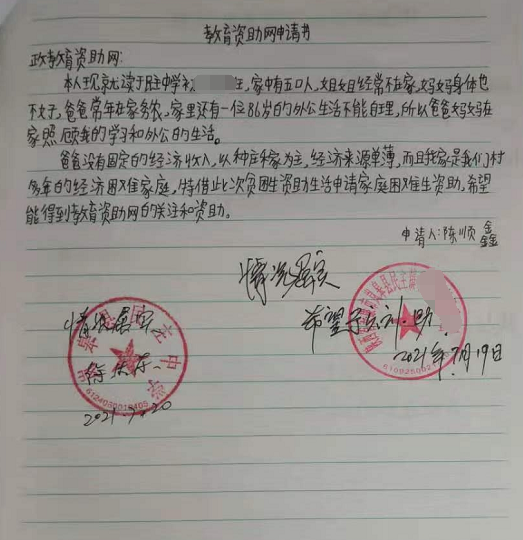 教育资助网申请书
政教育资助网:
本人现就读于胜中学初 班,家中有五口人,姐姐经常不在家,妈妈身体也
不好,爸爸常年在家务农,家里还有一位86岁的外公生活不能自理,所以爸爸妈妈在
家照顾我的学习和外公的生活。
爸爸没有固定的经济收入,以种庄稼为主,经济来源单薄,而且我家是我们村
多年的经济困难家庭,特借此次贫困生资助生活申请家庭困难生资助,希望
能得到教育资助网的关注和资助。
申请人:陈顺鑫
情况属实
希望予以
2021年7月19日
情况属实
2021.7.20